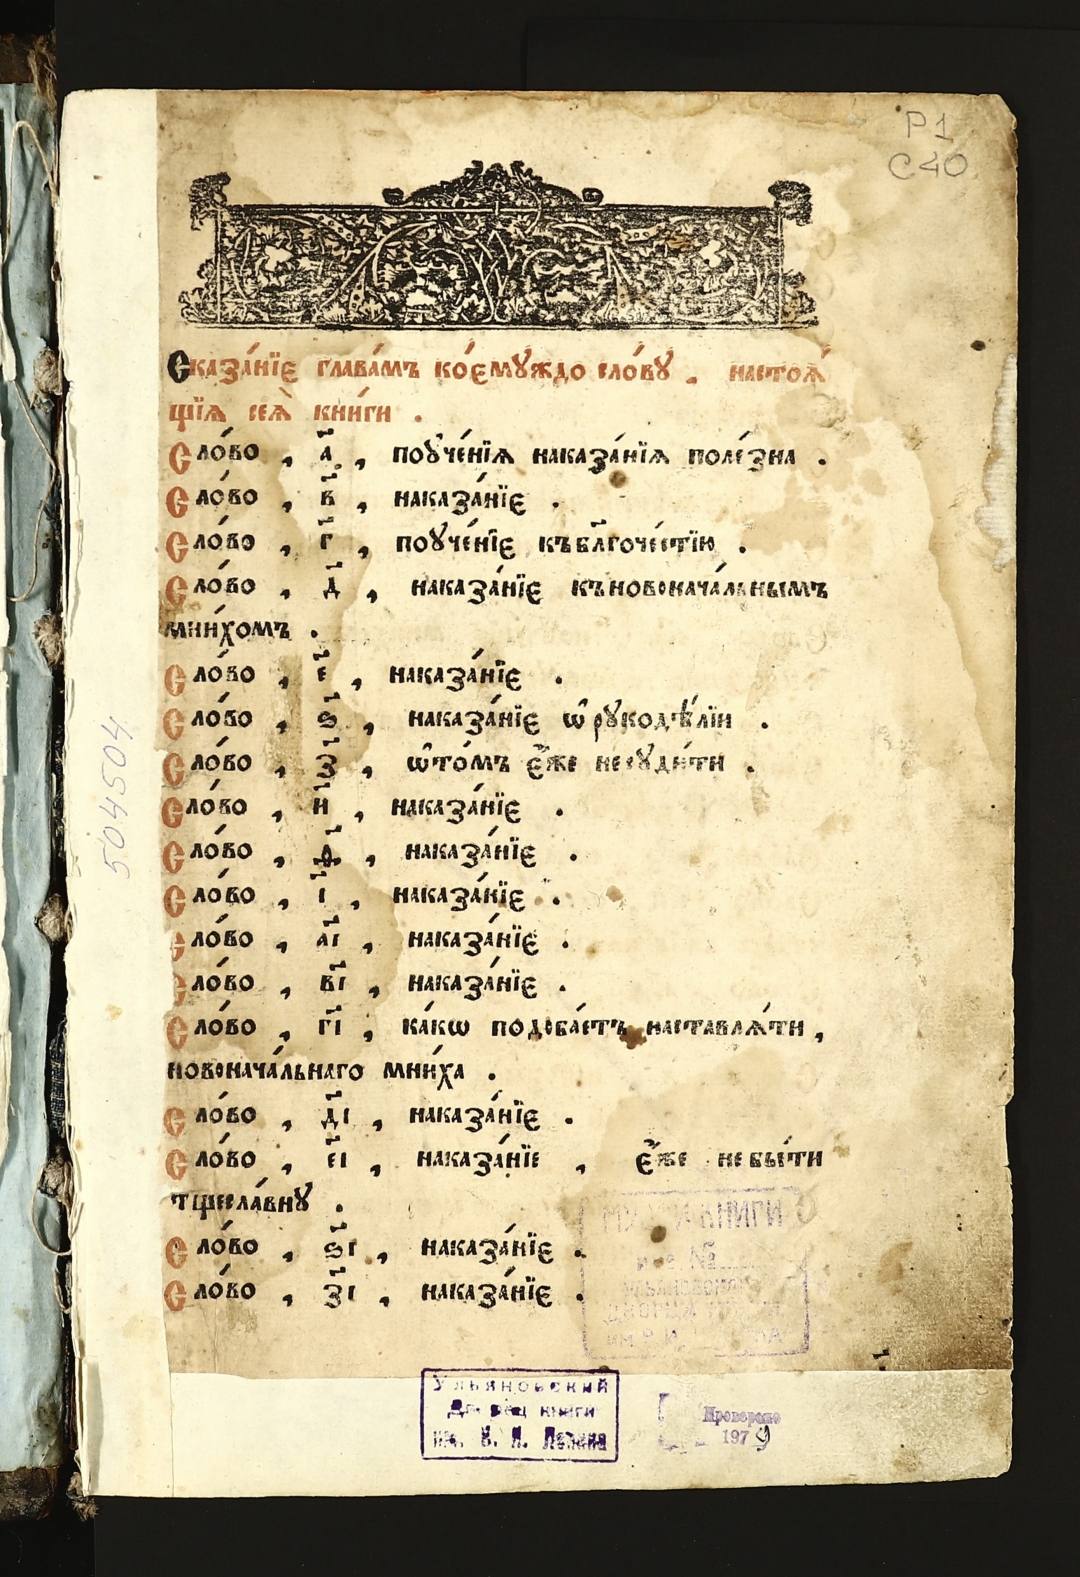 Р1
С40
Сказа́нїе глава́мъ ко́емꙋждо сло́вꙋ . настоѧ́
щїѧ сеѧ̀ кни́ги .
Сло́во , а҃ , поꙋче́нїѧ наказа́нїѧ поле́зна .
Сло́во , в҃ , наказа́нїе .
Сло́во , г҃ , поꙋче́нїе къбл҃гоче́стїю .
Сло́во , д҃ , наказа́нїе къновонача́льнымъ
мни́хомъ .
Сло́во , е҃ , наказа́нїе .
Сло́во , ѕ҃ , наказа́нїе ѡ҆рꙋкодѣ́лїи .
Сло́во , з҃ , ѡ҆то́мъ є҆́же несꙋди́ти .
Сло́во , и҃ , наказа́нїе .
Сло́во , ѳ҃ , наказа́нїе .
Сло́во , і҃ , наказа́нїе .
Сло́во , а҃і , наказа́нїе .
Сло́во , в҃і , наказа́нїе .
Сло́во , г҃і , ка́кѡ подоба́етъ наставлѧ́ти ,
новонача́льнаго мни́ха .
Сло́во , д҃і , наказа́нїе .
Сло́во , е҃і , наказа́нїе , є҆́же небы́ти
тщесла́внꙋ .
Сло́во , ѕ҃і , наказа́нїе .
Сло́во , з҃і , наказа́нїе .
504504
КНИГИ
Ульяновский
Дворец книги
им. В. И. Ленина
Проверено
1979